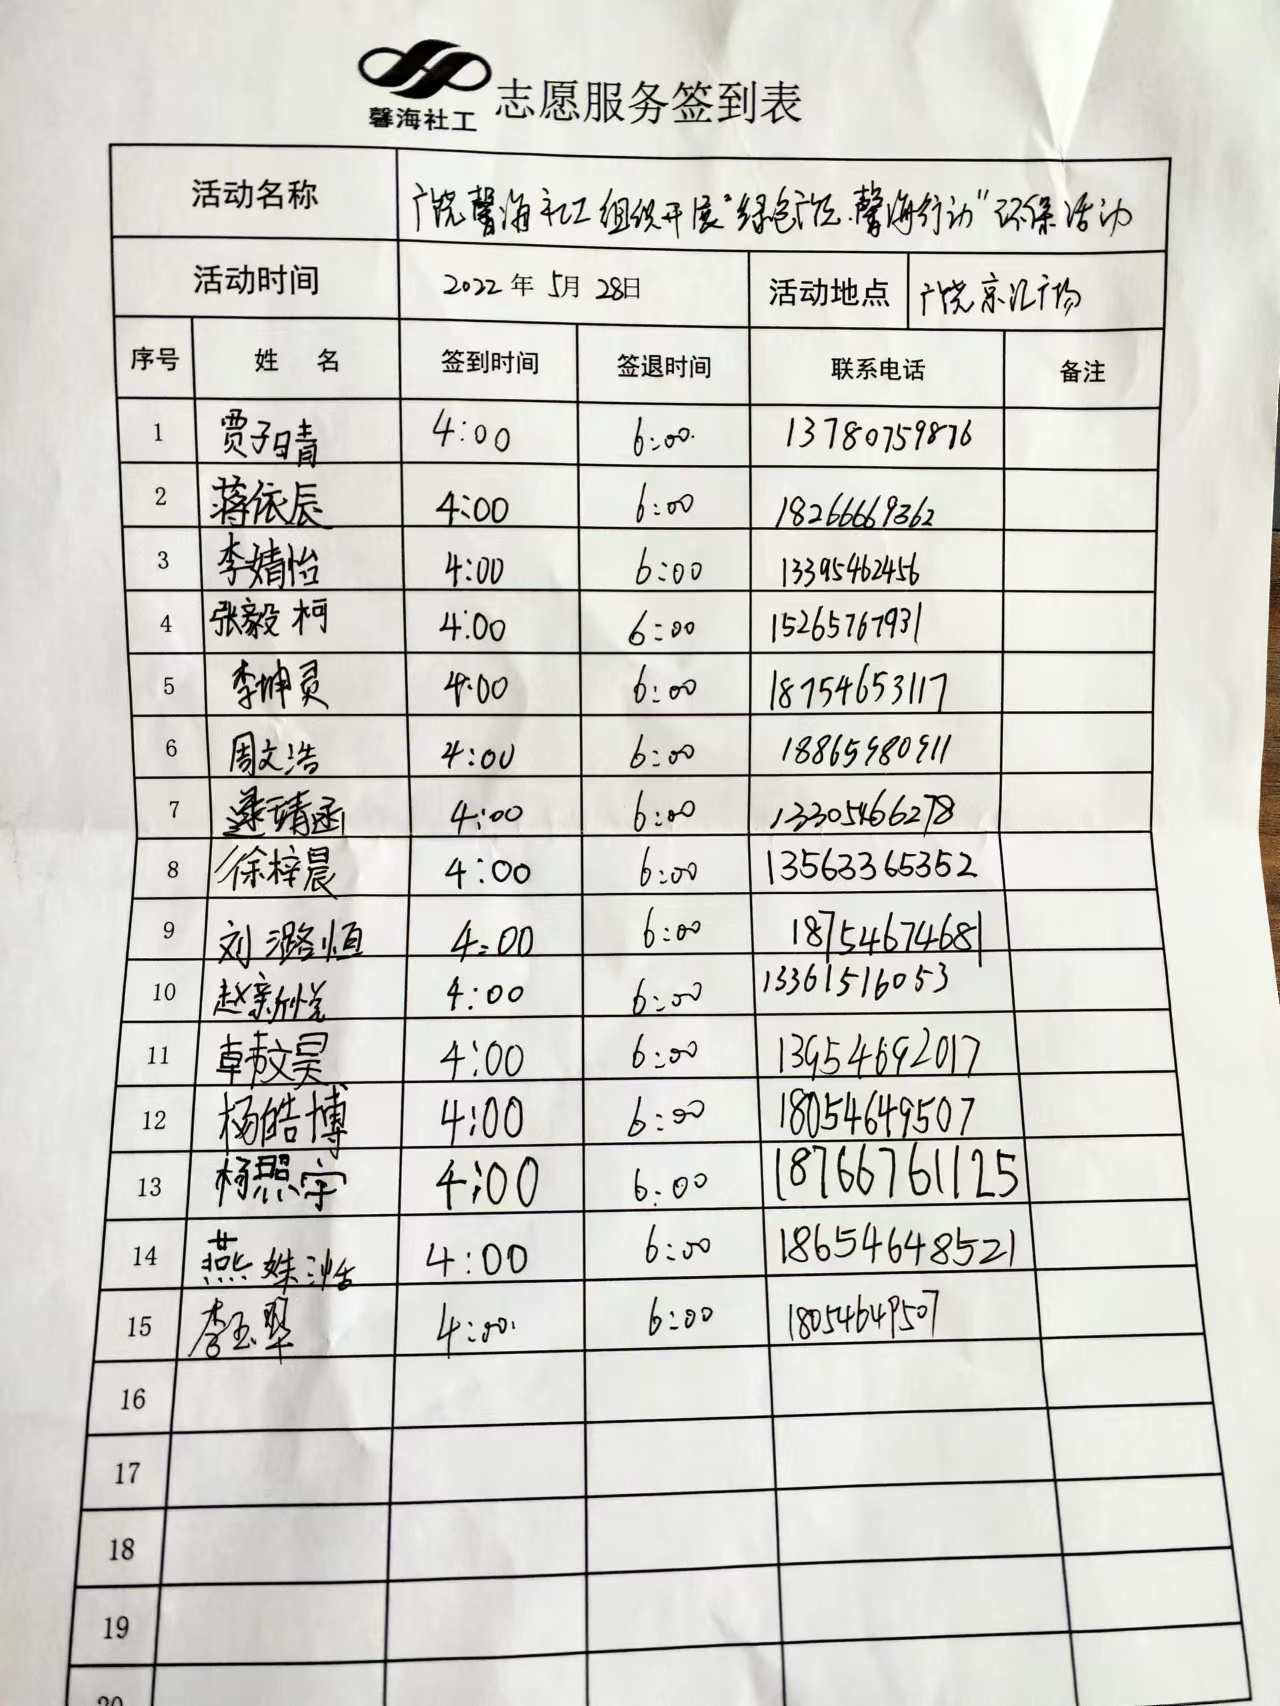 馨海社工
志愿服务签到表
活动名称 广饶馨海社工组织开展"绿色广饶.馨海行动"环保活动
活动时间 2022年5月28日 活动地点 广饶京汇广场
序号 姓 名 签到时间 签退时间 联系电话 备注
1 贾子晴 4:00 6:00 13780759876
2 蒋依辰 4:00 6:00 18266669362
3 李婧怡 4:00 6:00 13395462456
4 张毅柯 4:00 6:00 15265767931
5 李坤灵 4:00 6:00 18754653117
6 周文浩 4:00 6:00 18865980911
7 靖函 4:00 6:00 13305466278
8 徐梓晨 4:00 6:00 13563365352
9 刘潞恒 4:00 6:00 18754674681
10 赵新悦 4:00 6:00 13361516053
11 文昊 4:00 6:00 13954692017
12 杨皓博 4:00 6:00 18054649507
13 杨熙宇 4:00 6:00 18766761125
14 燕姝湉 4:00 6:00 18654648521
15 李玉 4:00 6:00 18054649507
16
17
18
19
20